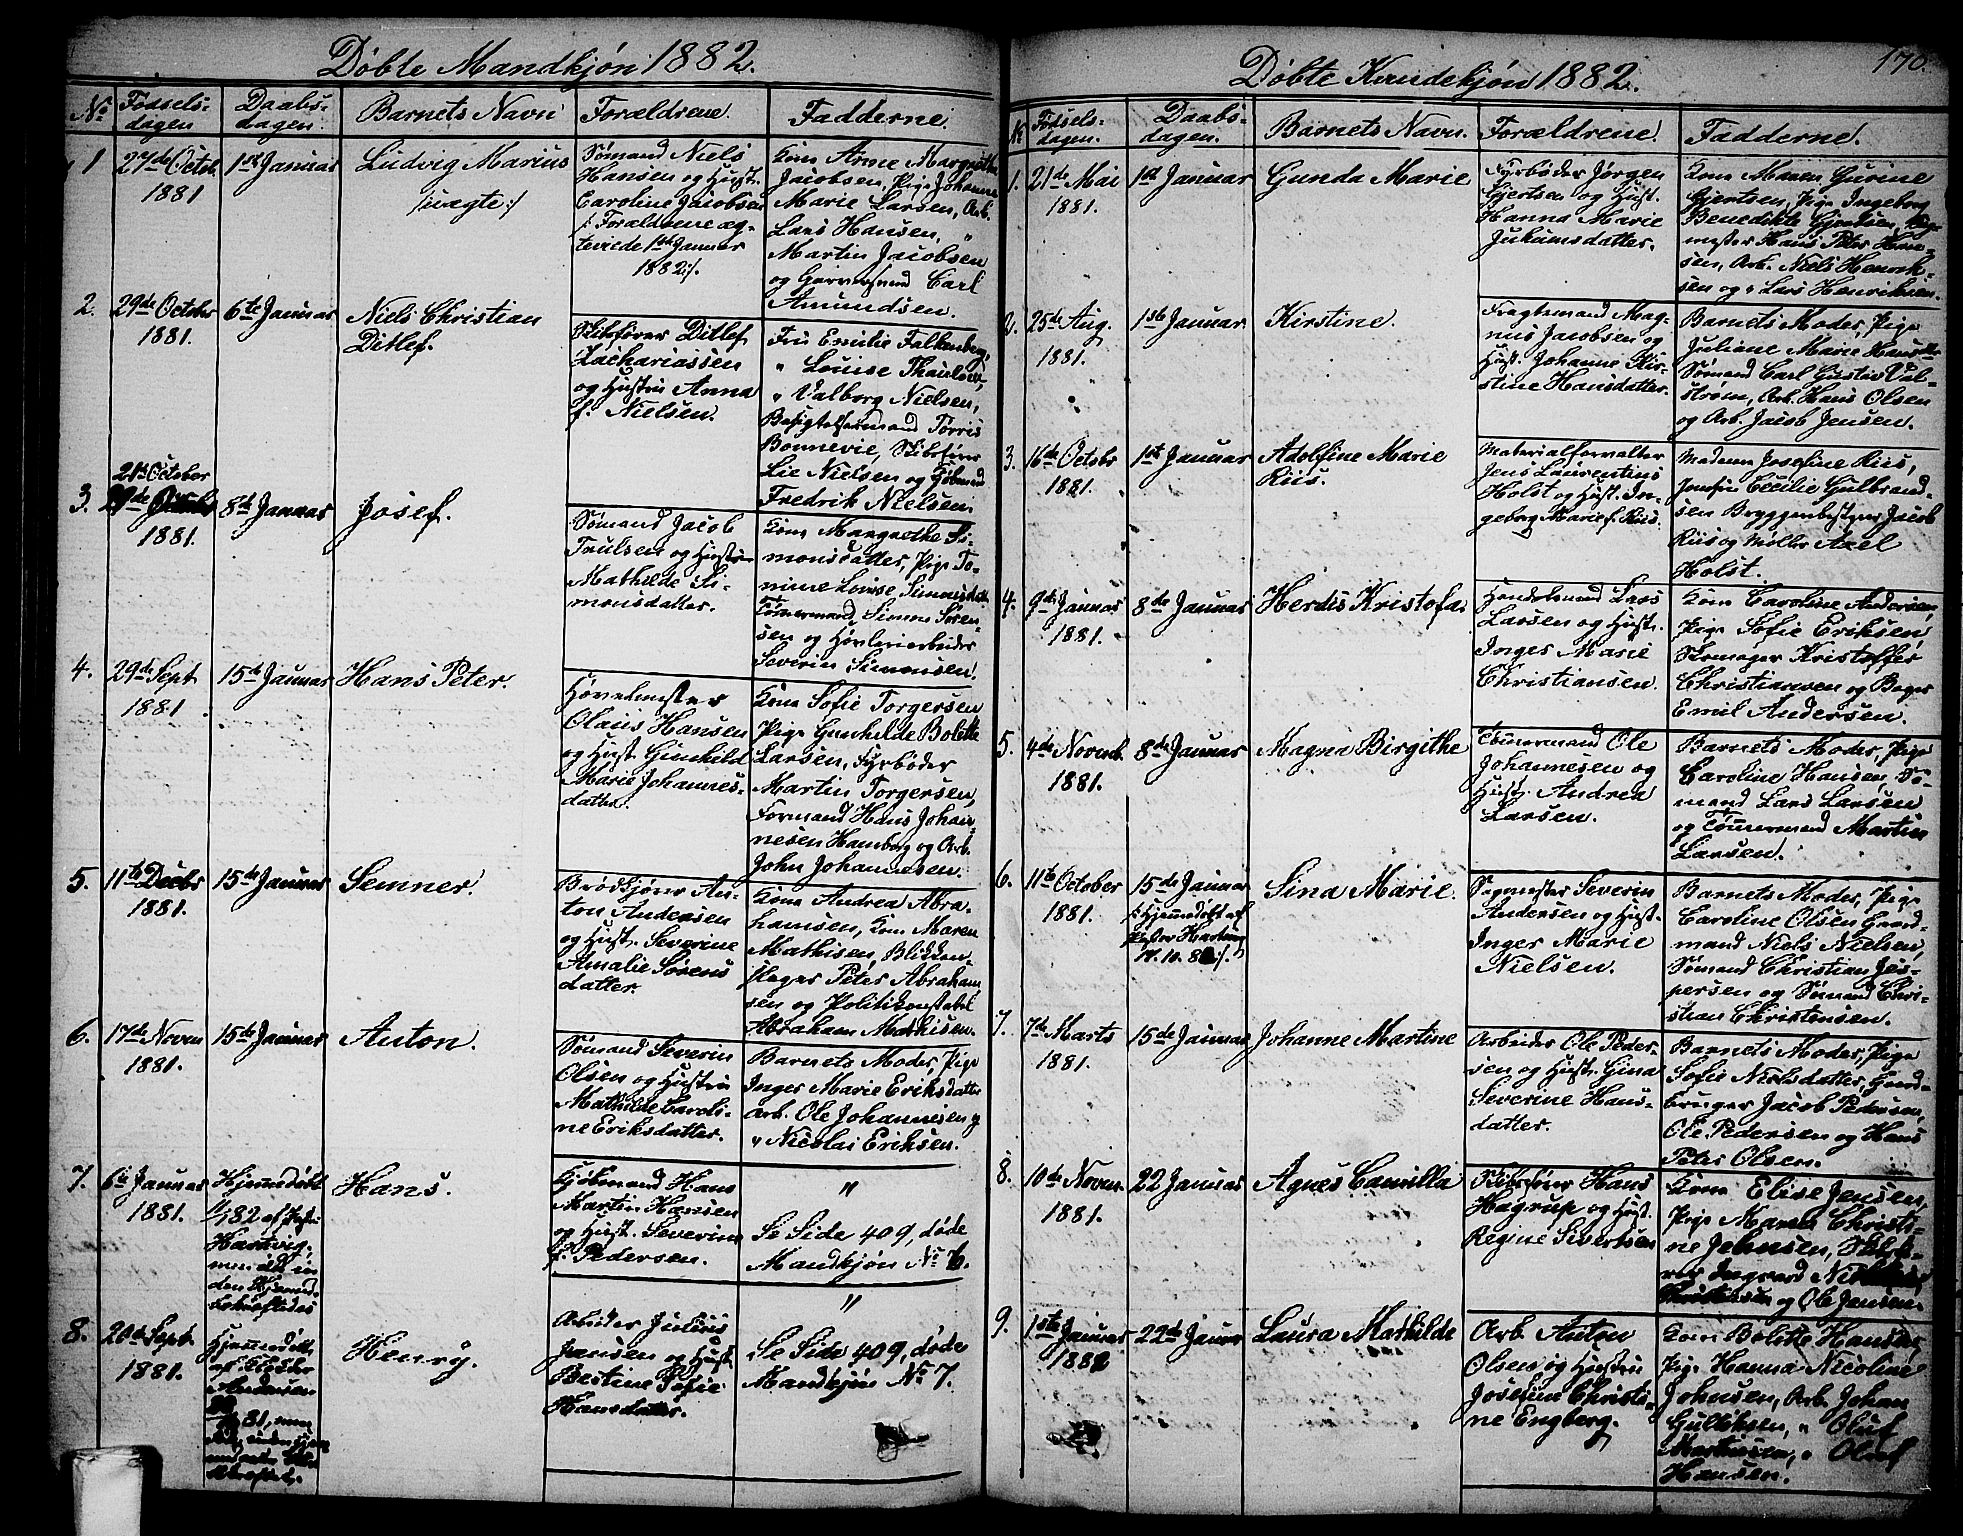 Döbte Mandkjøn 1882.
No
Fødsels-
dagen
Daabs-
dagen.
Barnets Navn
Forældrene.
Fadderne.
1
27de Octob.
1881
1ste Januar
Ludvig Marius
/:uægte:/
Sømand Niels
Hansen og Hust.
Caroline Jacobsen
/: Forældrene æg-
teviede 1ste Januar
1882:/.
Kom Anne Margrethe
Jacobsen, Pige Johanne
Marie Larsen, Arb.
Lars Hansen, "
Martin Jacobsen
og Carl
Amundsen.
2.
29de Octobr
1881.
6te Januar
Niels Christian
Ditlef.
Skibsfører Ditlef
Zachariassen
og Hustru Anna
f. Nielsen.
Fru Emilie Falkenberg,
" Louise Thaulow,
" Valborg Nielsen,
Besigtelsesmand Torris
Bonnevie, Skibsfører
Lie Nielsen og Kjøbmand
Fredrik Nielsen.
3.
21de October
1881.
8de Januar
Josef.
Sømand Jacob
Trulsen og Hustru
Mathilde Si-
monsdatter.
Kom Margrethe Si-
monsdatter, Pige To-
mine Lovise Simonsdatt.
Tømmermand Simon Søren-
sen og Høvleriarbeider
Severin Simonsen.
4.
29de Sept
1881
15de Januar
Hans Peter.
Høvelmester
Olaus Hansen
og Hust. Gunhild
Marie Johannes-
datter.
Kom Sofie Torgersen
Pige Gunhilde Bolette
Larsen, Fyrbøder
Martin Torgersen,
Formand Hans Johan-
nesen Hamberg og Arb.
John Johannesen.
5.
11te Decbr
1881.
15de Januar
Semner.
Brødkjører An-
ton Andersen
og Hust. Severine
Amalie Sørens
datter.
Kom Andrea Abra-
hamsen, Kom Maren
Mathisen, Blikken-
slager Peter Abraham-
sen og Politikonstabel
Abraham Mathisen.
6.
17de Novem
1881.
15de Januar
Anton.
Sømand Severin
Olsen og Hustru
Mathilde Caroli-
ne Eriksdatter.
Barnets Moder, Pige
Inger Marie Eriksdatter
Arb. Ole Johannesen og
" Nicolai Eriksen.
7.
6te Januar
1881.
Hjemmedøbt
af Præsten
Hartvig,
men død in
den Hjemmed.
Hans.
Kjøbmand Hans
Martin Hansen
og Hust. Severine
f. Pedersen.
"
Se Side 409, døde
Mandkjøn No 6.
8.
20de Sept.
1881.
Hjemmedøbt
af
Andersen
Henry.
Arbeider Julius
Jansen og Hust.
Bestine Sofie
Hansdatter.
"
Se Side 409, døde
Mandkjøn No 7.
170.
Döbte Kvindekjøn 1882.
No
Fødsels-
dagen.
Daabs-
dagen.
Barnets Navn.
Forældrene.
Fadderne.
1.
21de Mai
1881.
1ste Januar
Gunda Marie
Fyrbøder Jørgen
Gjertsen og Hust.
Hanna Marie
Juhansdatter.
Kom Maren Gurine
Gjertsen, Pige Ingeborg
Benedikte Gjertsen,
mester Hans Peter Han-
sen, Arb. Niels Henrik-
sen og " Lars Henriksen.
2.
25de Aug.
1881.
1ste Januar
Kirstine.
Fragtemand Mag-
nus Jacobsen og
Hust. Johanne Kir-
stine Hansdatter.
Barnets Moder, Pige
Juliane Marie Hansdtr
Sømand Carl Gustav Val-
strøm, Arb. Hans Olsen
og Arb. Jacob Jensen.
3.
16de Octobr
1881.
1ste Januar
Adolfine Marie
Riis.
Materialforvalter
Jens Laurentius
Holst og Hust. In-
geborg Marie f. Riis.
Madam Josefine Riis,
Jomfru Cecilie Gulbrand-
sen Bryggeribestyrer Jacob
Riis og Møller Axel
Holst.
4.
9de Januar
1881.
8de Januar
Herdis Kristofa.
Handelsmand Lars
Larsen og Hust.
Inger Marie
Christiansen.
Kom Caroline Andersen,
Pige Sofie Eriksen,
Skomager Kristoffer
Christiansen og Bager
Emil Andersen.
5.
4de Novemb.
1881.
8de Januar
Magna Birgithe
Tømmermand Ole
Johannesen og
Hust. Andrea
Larsen.
Barnets Moder, Pige
Caroline Hansen, Sø-
mand Lars Larsen
og Tømmermand Martin
Larsen.
6.
11te October
1881.
15de Januar
/: Hjemmedøbt af
Præsten Hartvig
Sina Marie.
Sagmester Severin
Andersen og Hust.
Inger Marie
Nielsen.
Barnets Moder, Pige
Caroline Olsen Gaard-
mand Niels Nielsen,
Sømand Christian Jes-
persen og Sømand Chri-
stian Christensen.
7.
7de Marts
1881.
15de Januar
Johanne Martine
Arbeider Ole Peder-
sen og Hust. Gina
Severine Hans-
datter.
Barnets Moder, Pige
Sofie Nielsdatter, Gaard-
bruger Jacob Pedersen,
Ole Pedersen og Hans
Peter Olsen.
8.
10de Novem.
1881.
22 Januar
Agnes Camilla
Skibsfører Hans
Hagrup og Hust.
Regine Sivertsen
Kom Elise Jensen,
Pige Maren Christi-
ne Johnsen,
Ingvard
og Ole Jensen.
9.
1ste Januar
1882
22de Januar
Laura Mathilde
Arb. Anton
Olsen og Hustru
Josefine Christi-
ne Engberg.
Kom Bolette Hansen,
Pige Hanna Nicoline
Johnsen, Arb. Johan
Gulliksen, " Oluf
Markussen, " Oluf
Hansen.